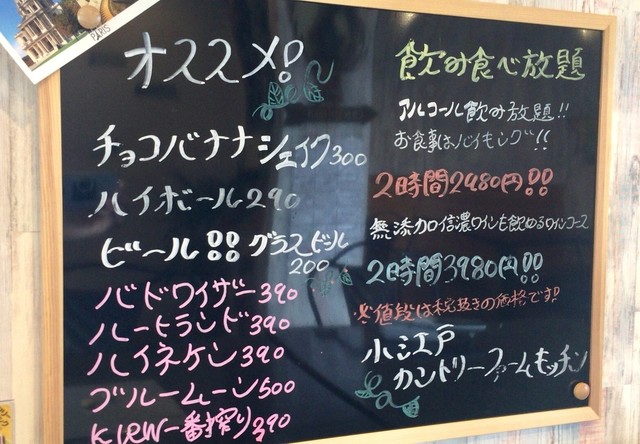 PARIS
オススメ!
チョコバナナシェイク300
ハイボール290
ビール!! グラスビール
200
バドワイザー390
ハートランド390
ハイネケン390
ブルームーン500
KIRIN一番搾り390
飲み食べ放題
アルコール飲み放題!!
お食事はバイキング!!
2時間2980円!!
無添加信濃ワインも飲めるワインコース
2時間3980円!!
※値段は税抜きの価格です!!
小江戸
カントリーファームキッチン